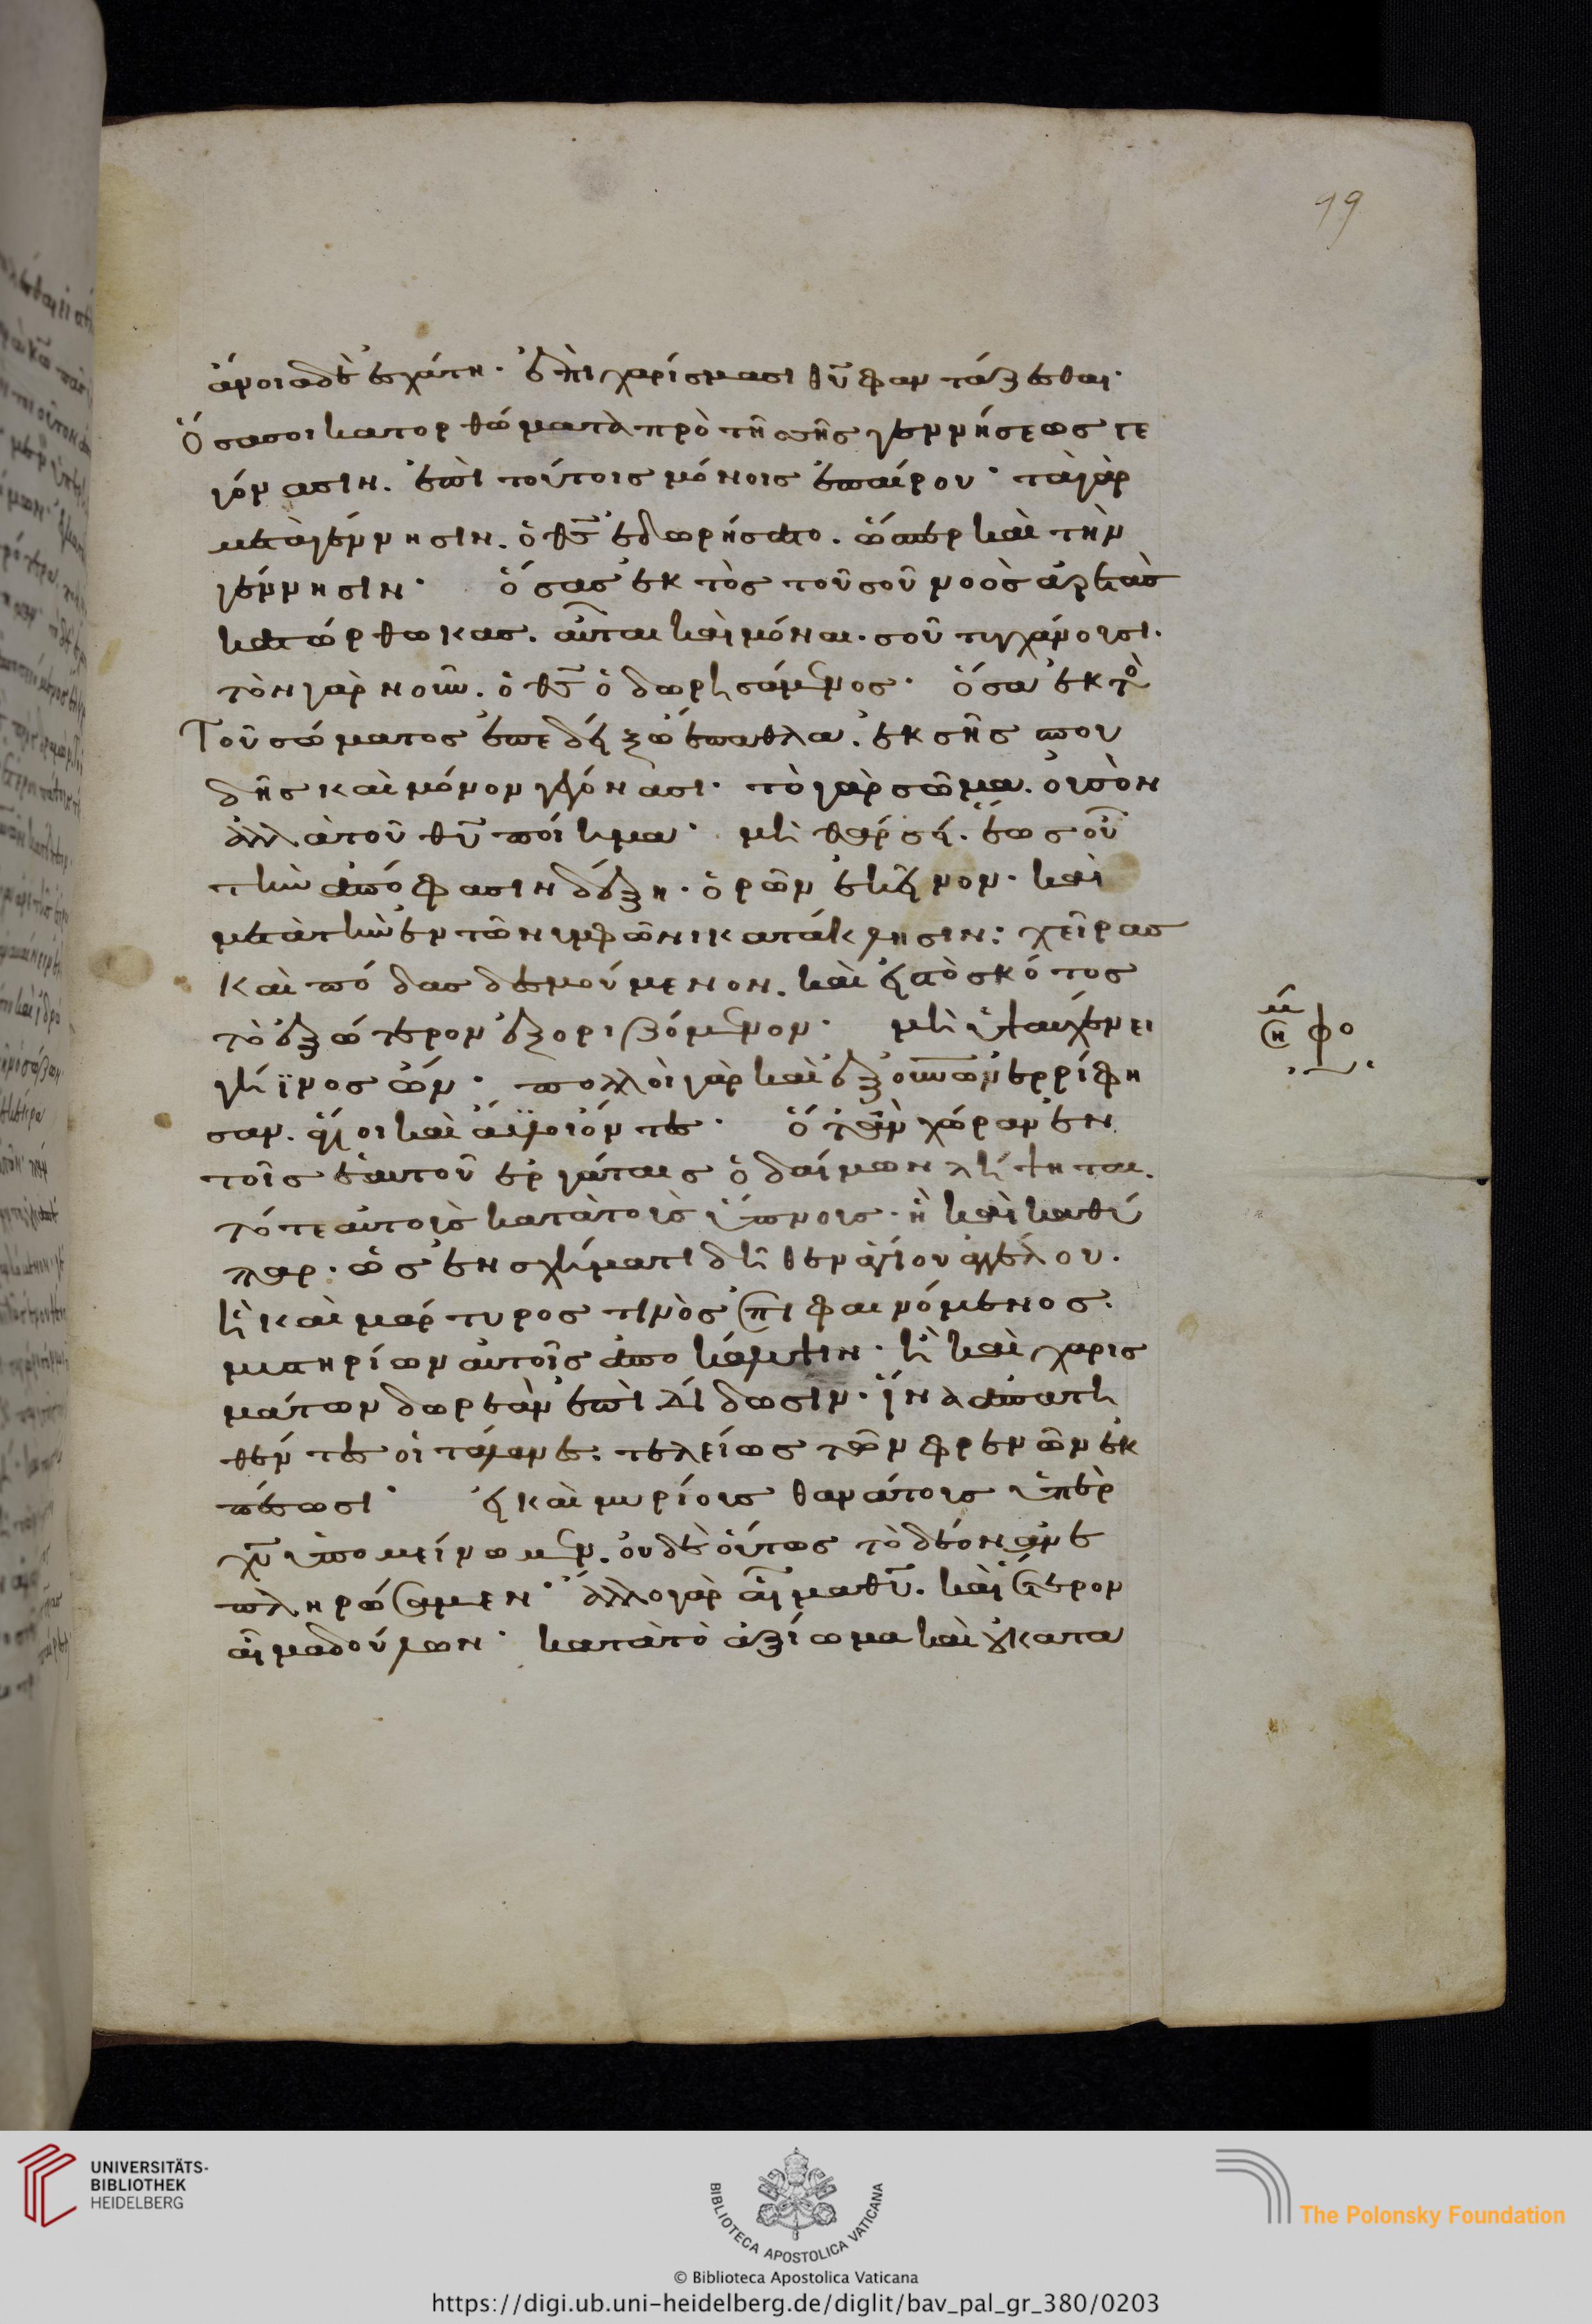 99
ἄνοια δὲ ἐσχάτη. ἐπὶ χαρίσμασι θῦ φαντάζεσθαι·
Ὅσα σοι κατορθώματα πρὸ τῆς σῆς γεννήσεως γε
γόνασιν. ἐπὶ τούτοις μόνοις ἐπαίρου· τὰ γὰρ
μετὰ γέννησιν. ὁ θς ἐδωρήσατο. ὥσπερ καὶ τὴν
γέννησιν· ὅσας ἐκτὸς τοῦ σοῦ νοὸς ἀρετὰς
κατώρθωκας. αὗται καὶ μόναι. σοῦ τυγχάνουσι.
τὸν γὰρ νοῦν. ὁ θς ὁ δωρησάμενος· ὅσα ἐκτὸ
Τοῦ σώματος ἐπεδείξω ἔπαθλα. ἐκ σῆς σπου
δῆς καὶ μόνον γεγόνασι· τὸ γὰρ σῶμα. οὐ σὸν
ἀλλὰ τοῦ θῦ ποίημα· μὴ θάρσει. ἕως οὗ
τὴν ἀπόφασιν δέξῃ. ὁρῶν ἐκεῖνον. καὶ
μετὰ τὴν ἐν τῶ νυμφῶνι κατάκλησιν: χεῖρας
καὶ πόδας δεσμούμενον. καὶ εἰς τὸ σκότος
τὸ ἐξώτερον ἐξοριζόμενον· μὴ ὑψαυχένει
γήϊνος ὤν· πολλοὶ γὰρ καὶ ἐξ οὐνων ἐρρίφη
σαν. ἅγιοι καὶ ἄϋλοι ὄντες· ὅταν χώραν ἐν
τοῖς ἑαυτοῦ ἐργάταις ὁ δαίμων λήψηται.
τότε αὐτοῖς κατὰ τοὺς ὕπνους. ἢ καὶ καθύ
παρ. ὡς ἐν σχήματι δῆθεν ἁγίου ἀγγέλου.
ἢ καὶ μάρτυρος τινὸς ἐπιφαινόμενος.
μυστηρίων αὐτοῖς ἀποκάλυψιν. ἢ καὶ χαρισ
μάτων δωρεὰν ἐπιδίδωσιν. ἵνα ἀπατη
θέντες οἱ τάλανες. τελείως τῶν φρενῶν ἐκ
πέσωσι· εἰ καὶ μυρίους θανάτους ὑπὲρ
χῦ ὑπομείνωμεν. οὐδὲ οὕτως τὸ δέον ἂν ἐ
πληρώσαμεν· ἄλλο γὰρ αἷμα θῦ. καὶ ἕτερον
αἷμα δούλων· κατὰ τὸ ἀξίωμα καὶ οὐ κατὰ
UNIVERSITÄTS-
BIBLIOTHEK
HEIDELBERG
BIBLIOTECA APOSTOLICA VATICANA
The Polonsky Foundation
© Biblioteca Apostolica Vaticana
https://digi.ub.uni-heidelberg.de/diglit/bav_pal_gr_380/0203